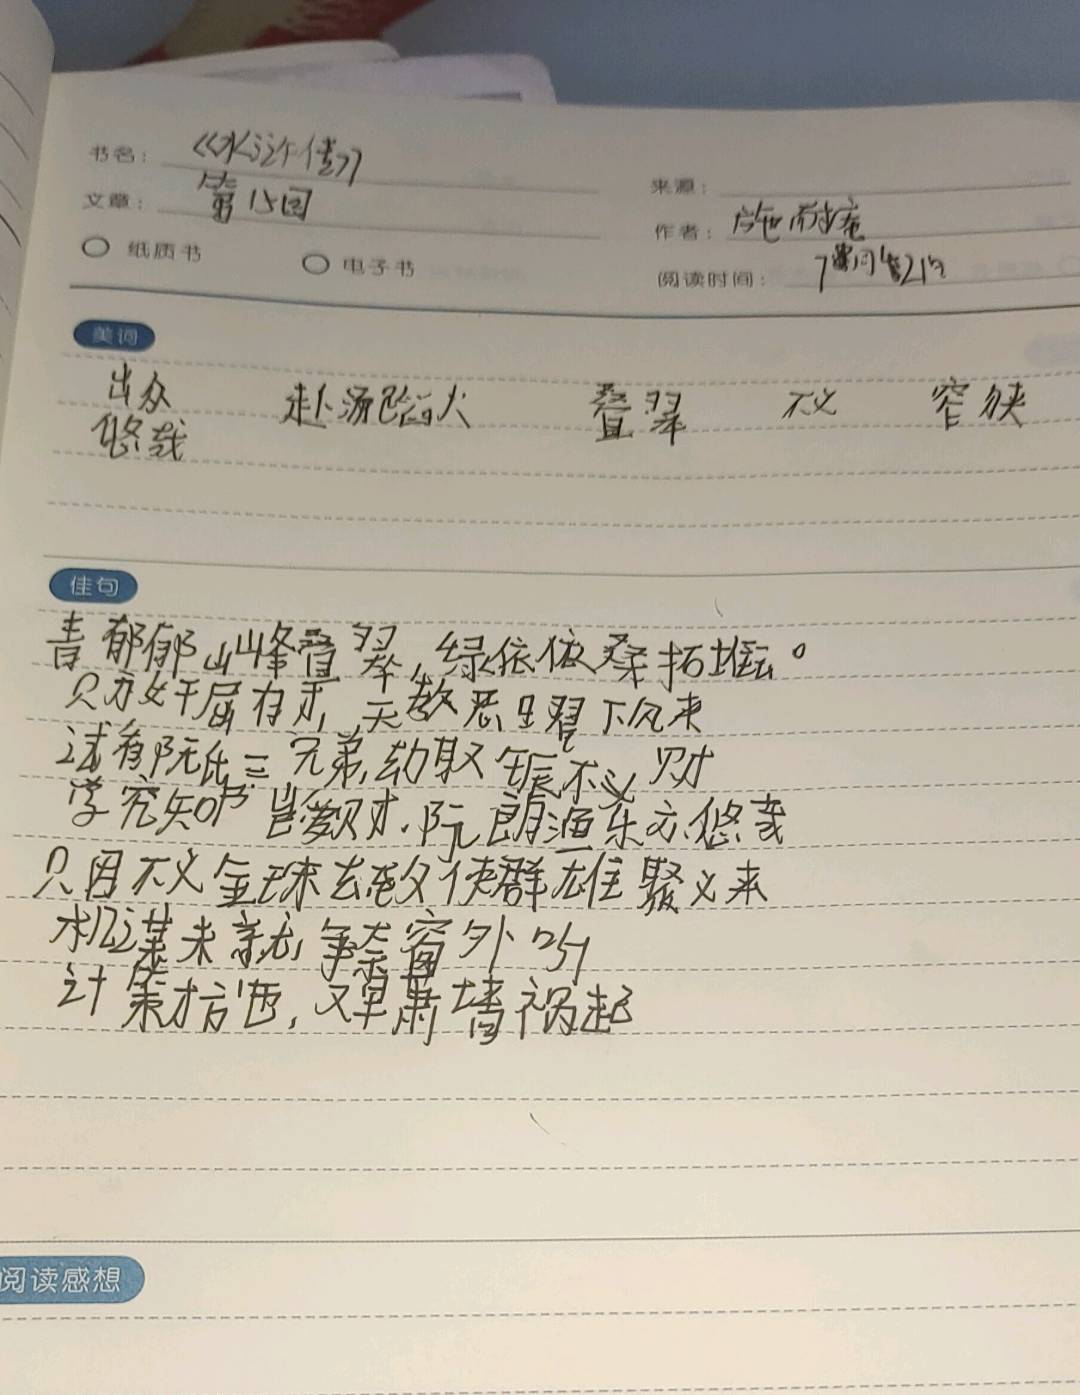 书名： 《水浒传》
文章： 第15回
来源：
作者： 施耐庵
纸质书 电子书
阅读时间： 7月21日
美词
出众 赴汤蹈火 叠翠 不义 窄狭
悠哉
佳句
青郁郁山峰叠翠，绿依依桑拓堆云。
只为奸属有才，天教恶曜下凡来
试看阮氏三兄弟，劫取生辰不义财
学究知书岂爱财，阮郎渔乐亦悠哉
只因不义金珠去，致使群雄聚义来
机谋未就，争奈窗外听
计策才施，又早萧墙祸起
阅读感想